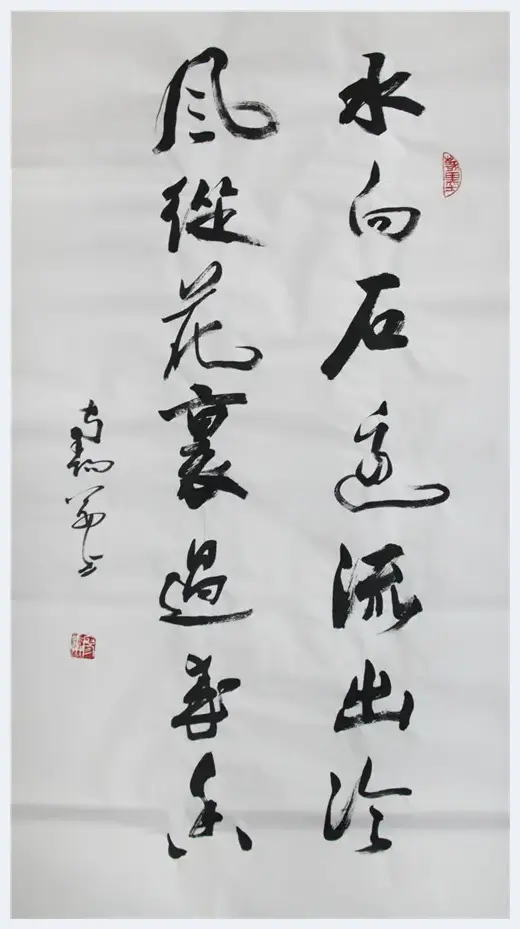 水向石邊流出冷
風從花裏過來香